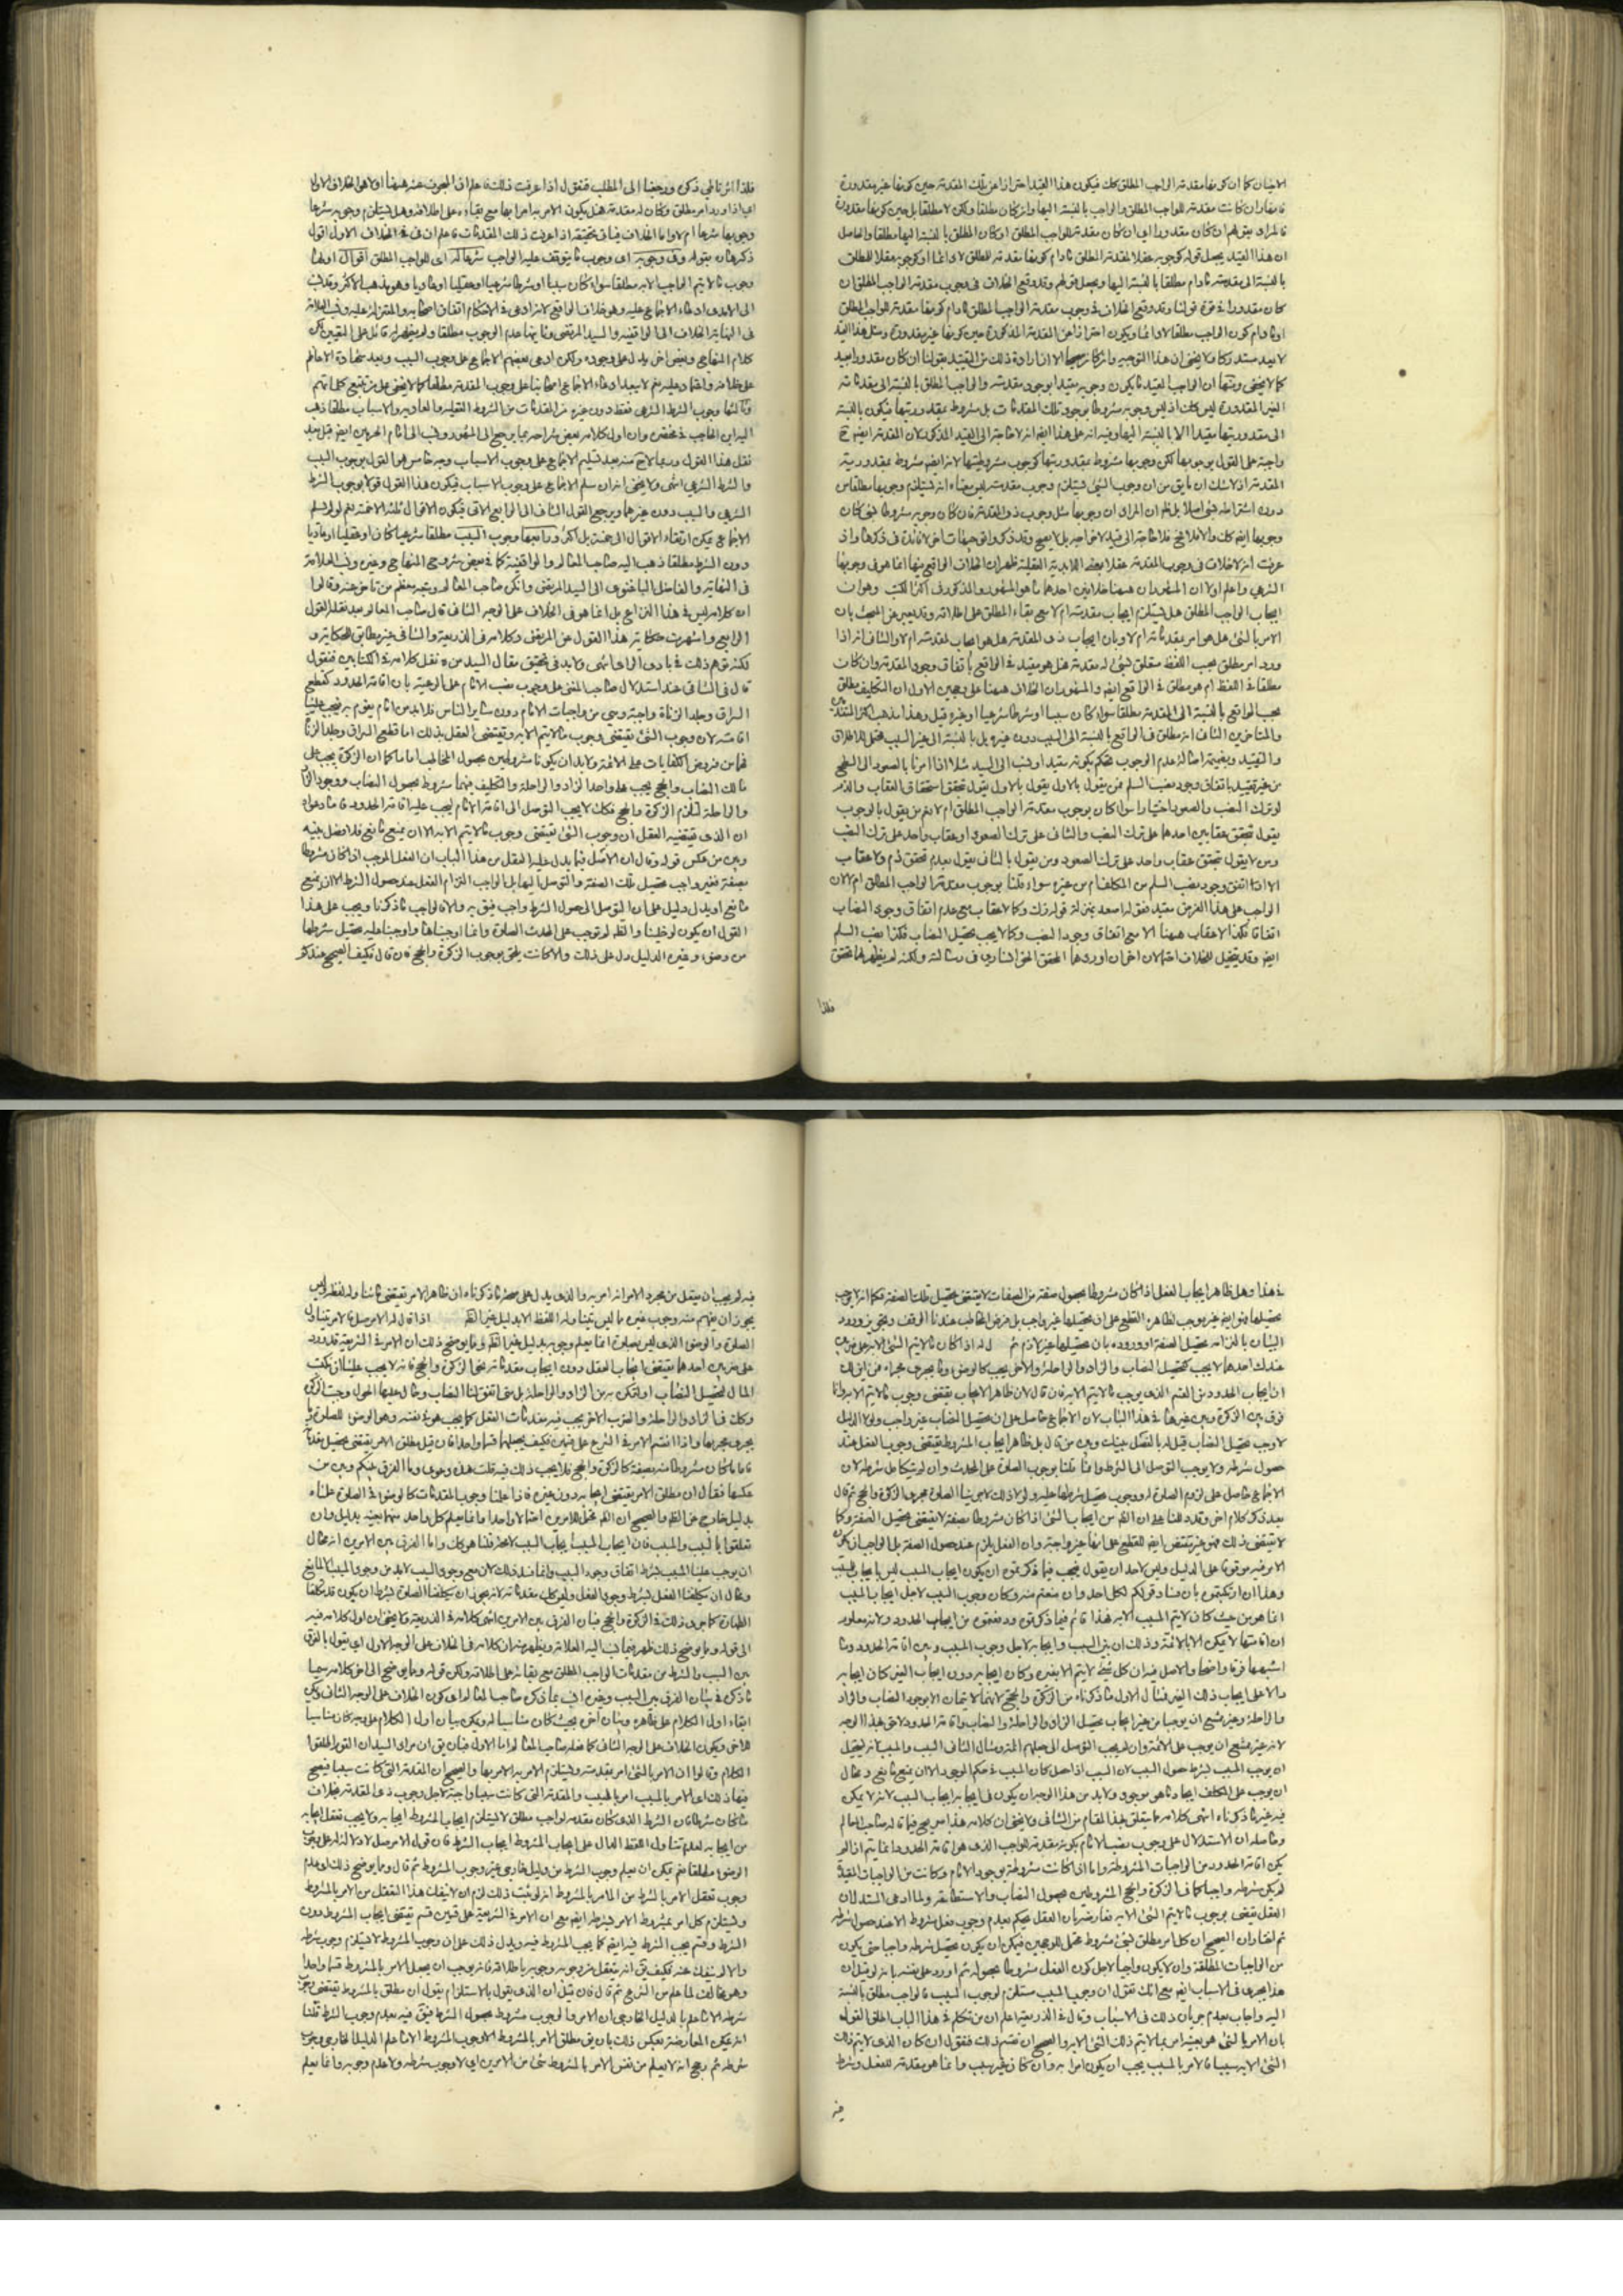 الاتيان كما ان كونها مقدمة الواجب المطلق كك فيكون هذا القيد احترازا عن تلك المقدمة حين كونها غير مقدورة
فانها وان كانت مقدمة للواجب المطلق والواجب بالنسبة اليها وان كان مطلقا ولكن لا مطلقا بل حين كونها مقدورة
فالمراد بقولهم ان كان مقدورا اي ان كان مقدمة للواجب المطلق او كان المطلق بالنسبة اليها مطلقا والحاصل
ان هذا القيد يجعل قوله كوجوبه عقلا لمقدمة المطلق مادام كونها مقدمة للمطلق لا دائما او كوجوبه عقلا للمطلق
بالنسبة الى مقدمته مادام مطلقا بالنسبة اليها ويجعل قولهم وقد وقع الخلاف في وجوب مقدمة الواجب المطلق ان
كان مقدورا في قوة قولنا وقد وقع الخلاف في وجوب مقدمة الواجب المطلق مادام كونها مقدمة للواجب المطلق
او مادام كون الواجب مطلقا لا دائما ويكون احترازا عن المقدمة المذكورة حين كونها غير مقدورة ومثل هذا القيد
لا يعد مستدركا ولا يخفى ان هذا التوجيه وان كان صحيحا الا ان ارادة ذلك من التقييد بقولنا ان كان مقدورا بعيد
كما لا يخفى ومنها ان الواجب المقيد ما يكون وجوبه مقيدا بوجود مقدمته والواجب المطلق بالنسبة الى مقدماته
الغير المقدورة ليس كك اذ ليس وجوبه مشروطا بوجود تلك المقدمات بل مشروط بمقدوريتها فيكون بالنسبة
الى مقدوريتها مقيدا الا بالنسبة اليها وفيه انه على هذا ايضا لا حاجة الى القيد المذكور لان المقدمة ايضا ح
واجبة على القول بوجوبها لكن وجوبها مشروط بمقدوريتها كوجوب مشروطيتها لانه ايضا مشروط بمقدورية
المقدمة اذ لا شك ان ما يق من ان وجوب الشئ يستلزم وجوب مقدمته ليس معناه انه يستلزم وجوبها مطلقا من
دون اشتراطه بشئ اصلا بل معناه ان المراد ان وجوبها مثل وجوب ذي المقدمة فان كان وجوبه مشروطا بشئ كان
وجوبها ايضا كك والا فلا فح فلا حاجة الى قيد لاخراجه بل لا يصح وقد ذكروا في جهات اخر لا فائدة في ذكرها واذ
عرفت انه لا خلاف في وجوب المقدمة عقلا بمعنى اللابدية العقلية ظهر ان الخلاف الواقع فيها انما هو في وجوبها
الشرعي واعلم اولا ان المشهور ان هيهنا خلافين احدهما ما هو المشهور والمذكور في اكثر الكتب وهو ان
ايجاب الواجب المطلق هل يستلزم ايجاب مقدمته ام لا مع بقاء المطلق على اطلاقه وقد يعبر عن المبحث بان
الامر بالشئ هل هو امر بمقدماته ام لا وبان ايجاب ذي المقدمة هل هو ايجاب لمقدمته ام لا والثاني انه اذا
ورد امر مطلق بحسب اللفظ متعلق بشئ له مقدمة هل هو مقيد في الواقع باتفاق وجود المقدمة وان كان
مطلقا في اللفظ ام هو مطلق في الواقع ايضا والمشهور ان الخلاف هيهنا على وجهين الاول ان التكليف مطلق
بحسب الواقع بالنسبة الى المقدمة مطلقا سواء كان سببا او شرطا شرعيا او غيره قيل وهذا مذهب اكثر المتقدمين
والمتاخرين الثاني انه مطلق في الواقع بالنسبة الى السبب دون غيره بل بالنسبة الى غير السبب محتمل للاطلاق
والتقييد وبقيته اصالة عدم الوجوب يحكم بكونه مقيد او نسب الى السيد مثلا اذا امرنا بالصعود الى السطح
من غير تقييد باتفاق وجود نصب السلم فمن يقول بالاول يقول بتحقق استحقاق العقاب والذم
لو ترك النصب والصعود اختيارا سواء كان بوجوب مقدمة الواجب المطلق ام لا نعم من يقول بالوجوب
يقول بتحقق عقابين احدهما على ترك النصب والثاني على ترك الصعود او عقاب واحد على ترك النصب
ومن لا يقول بتحقق عقاب واحد على ترك الصعود ومن يقول بالثاني يقول بعدم تحقق ذم ولا عقاب
الا اذا اتفق وجود نصب السلم من المكلف ام من غيره سواء قلنا بوجوب مقدمة الواجب المطلق ام لا لان
الواجب على هذا الفرض مقيد فقوله اصعد بمنزلة قوله زك وكما لا عقاب مع عدم اتفاق وجود النصاب
اتفاقا فكذا لا عقاب هيهنا الا مع اتفاق وجود النصب وكما لا يجب تحصيل النصاب فكذا نصب السلم
ايضا وقد يتخيل للخلاف احتمالان اخران اوردهما المحقق الخوانساري في رسالته ولكنه لم يظهر لهما تحقق
فلذا
فلذا اثرنا طي ذكره ورجعنا الى المطلب فنقول اذا عرفت ذلك فاعلم ان المبحوث عنه هيهنا اولا هو الخلاف الاول
اي اذا ورد امر مطلق وكان له مقدمة هل يكون الامر به امرا بها مع بقاءه على اطلاقه وهل يستلزم وجوبه شرعا
وجوبها شرعا ام لا واما الخلاف الثاني فياتي تحقيقه اذا عرفت ذلك المقدمات فاعلم ان في الخلاف الاول اقوال
ذكرها بقوله وفي وجوبه اي وجوب ما يتوقف عليه الواجب شرعا له اي للواجب المطلق اقوال اولها
وجوب ما لا يتم الواجب الا به مطلقا سواء كان سببا او شرطا شرعيا او عقليا او عاديا وهو مذهب الاكثر وقد نسب
الى الامدي ادعاء الاجماع عليه وهو خلاف الواقع لانه ادعى في الاحكام اتفاق اصحابه والمعتزلة عليه ونسب العلامة
في النهاية الخلاف الى الواقفية والسيد المرتضى وثانيها عدم الوجوب مطلقا ولم يظهر له قائل على التعيين لكن
كلام المنهاج وبعض اخر يدل على وجوده ولكن ادعى بعضهم الاجماع على وجوب السبب
وثالثها وجوب الشرط الشرعي فقط دون غيره من المقدمات من الشروط العقلية والعادية والاسباب مطلقا ذهب
اليه ابن الحاجب في مختصره وان اول كلامه بعض شراحه بما يرجع الى المشهور ونسب الى امام الحرمين ايضا
نقل هذا القول وربما لاح منه بعد تسليم الاجماع على وجوب الاسباب وجه خامس هو القول بوجوب السبب
والشرط الشرعي انتهى ولا يخفى انه ان سلم الاجماع على وجوب الاسباب فيكون هذا القول قولا بوجوب الشرط
الشرعي والسبب دون غيرهما ويرجع القول الثاني الى الرابع الاتي فيكون الاقوال ثلثة لا خمسة نعم لو لم يسلم
الاجماع يمكن ارتقاء الاقوال الى خمسة بل اكثر ورابعها وجوب السبب مطلقا شرعيا كان او عقليا او عاديا
دون الشرط مطلقا ذهب اليه صاحب المعالم والواقفية كما في بعض شروح المنهاج وغيره ونسبه العلامة
في النهاية والفاضل الباغنوي الى السيد المرتضى وانكر صاحب المعالم وتبعه معظم من تاخر عنه وقالوا
ان كلامه ليس في هذا النزاع بل انما هو في الخلاف على الوجه الثاني قال صاحب المعالم بعد نقله القول
الرابع واشتهرت حكاية هذا القول عن المرتضى وكلامه في الذريعة والشافي غير مطابق للحكاية و
لكنه يوهم ذلك في بادي الراي انتهى ولا بد في تحقيق مقال السيد من نقل كلامه في الكتابين فنقول
قال في الشافي عند استدلال صاحب المغني على وجوب نصب الامام على الرعية بان اقامة الحدود كقطع
السراق وجلد الزناة واجبة وهي من واجبات الامام دون سائر الناس فلابد من امام يقوم به فيجب علينا
اقامته لان وجوب الشئ يقتضي وجوب ما لا يتم الا به ويقتضي العقل بذلك اما قطع السراق وجلد الزناة
فهما من فروض الكفايات على الائمة ولا بد ان يكونا مشروطين بحصول المخاطب اماما كما ان الزكوة يجب على
مالك النصاب والحج يجب على واجد الزاد والراحلة والتكليف فيهما مشروط بحصول النصاب ووجود الزاد
والراحلة فكما لم يلزم الزكوة والحج فكك لا يجب التوصل الى اقامة الامام ليجب عليه اقامة الحدود فاما دعواه
ان الذي يقتضيه العقل ان وجوب الشئ يقتضي وجوب ما لا يتم الا به الا ان يمنع مانع فلا فصل بينه
وبين من عكس قوله وقال ان الاصل فيما يدل عليه العقل من هذا الباب ان الفعل الموجب اذا كان مشروطا
بصفة فغير واجب تحصيل تلك الصفة والتوصل اليها بل الواجب التزام الفعل عند حصول الشرط الا ان يمنع
مانع او يدل دليل على ان التوصل الى حصول الشرط واجب فيق به والا فالواجب ما ذكرنا ويجب على هذا
القول ان يكون لو خلينا والظ لم توجب على المحدث الصلوة وانما اوجبناها واوجبنا عليه تحصيل شرطها
من وضوء وغيره لدليل دل على ذلك والا لكانت تلحق بوجوب الزكوة والحج فان قال فكيف الصحيح عندكم
في هذا وهل ظاهر ايجاب الفعل اذا كان مشروطا بحصول صفة من الصفات لا يقتضي تحصيل تلك الصفة
البيان بالزامه تحصيل الصفة او وروده بان تحصيلها غير لازم ثم اذا كان ما لا يتم الشئ الا به على ضربين
عندك احدهما لا يجب كتحصيل النصاب والزاد والراحلة والاخر يجب كالوضوء وما يجري مجراه فمن اين لك
ان ايجاب الحدود من القسم الذي يوجب ما لا يتم الا به فان قال لان ظاهر الايجاب يقتضي وجوب ما لا يتم الا به وانما
فرق بين الزكوة وبين غيرها في هذا الباب لان الاجماع حاصل على ان تحصيل النصاب غير واجب ولو لا الدليل
لاوجب تحصيل النصاب قيل له ما الفصل بينك وبين من قال بل ظاهر ايجاب المشروط يقتضي وجوب الفعل عند
حصول شرطه ولا يوجب التوصل الى الشرط وانما قلنا بوجوب الصلوة على المحدث وان لم يتكامل شرطه لان
الاجماع حاصل على لزوم الصلوة له ووجوب تحصيل شرطها عليه ولو لا ذلك لاجرينا الصلوة مجرى الزكوة والحج ثم قال
بعد ذكر كلام اخر وقد دللنا على ان الظ من ايجاب الشئ اذا كان مشروطا بصفة لا يقتضي تحصيل الصفة وكما
لا يقتضي ذلك فهو غير مقتض ايضا للقطع على انها غير واجبة وان الفعل يلزم عند حصول الصفة بل الواجب ان يكون
الامر فيه موقوفا على الدليل وليس لاحد ان يقول يجب فيما ذكرتموه ان يكون ايجاب المسبب ليس بايجاب للسبب
وهذا ان ارتكبتموه بان فساد قولكم لكل احد وان منعتم منه وكان وجوب السبب لاجل ايجاب المسبب
انما هو من حيث كان لا يتم المسبب الا به فهذا قائم فيما ذكرتموه ودفعتموه من ايجاب الحدود ولانه معلوم
ان اقامتها لا يمكن الا بالائمة وذلك ان بين السبب وايجابه لاجل وجوب المسبب وبين اقامة الحدود وما
اشبهها فرقا واضحا والاصل فيه ان كل شئ لا يتم الا بغيره وكان ايجابه دون ايجاب الغير كان ايجابه
دالا على ايجاب ذلك الغير فمثال الاول ما ذكرناه من الزكوة والحج لانهما لا يتمان الا بوجود النصاب والزاد
والراحلة وغير ممتنع ان يوجبا من غير ايجاب تحصيل الزاد والراحلة والنصاب واقامة الحدود لاحق بهذا الوجه
لانه غير ممتنع ان يوجب على الائمة وان لم يجب التوصل الى جعلهم ائمة ومثال الثاني السبب والمسبب لانه يستحيل
ان يوجب المسبب بشرط حصول السبب لان السبب اذا حصل كان المسبب في حكم الموجود الا ان يمنع مانع ومحال
ان يوجب على المكلف ايجاد ما هو موجود ولا بد من هذا الوجه ان يكون في ايجابه ايجاب السبب لانه لا يمكن
فيه غير ما ذكرناه انتهى كلامه مما يتعلق بهذا المقام من الشافي ولا يخفى ان كلامه هذا صريح فيما قاله صاحب المعالم
وحاصله ان الاستدلال على وجوب نصب الامام بكونه مقدمة للواجب الذي هو اقامة الحدود انما يتم اذا لم
يكن اقامة الحدود من الواجبات المشروطة واما اذا كانت مشروطة بوجود الامام وكانت من الواجبات المقيدة
لم يكن شرطه واجبا كما في الزكوة والحج المشروطين بحصول النصاب والاستطاعة ولما ادعى المستدل ان
العقل يقضي بوجوب ما لا يتم الشئ الا به فعارضه بان العقل يحكم بعدم وجوب فعل مشروط الا عند حصول شرطه
ثم افاد ان الصحيح ان كل امر مطلق لشئ مشروط محتمل للوجهين فيمكن ان يكون تحصيل شرطه واجبا حتى يكون
من الواجبات المطلقة وان لا يكون واجبا لاجل كون الفعل مشروطا بحصوله ثم اورد على نفسه بانه لو قيل ان
هذا يجري في الاسباب ايضا مع انك تقول ان وجوب المسبب مستلزم لوجوب السبب فالواجب مطلق بالنسبة
اليه واجاب بعدم جريان ذلك في الاسباب وقال في الذريعة اعلم ان من تكلم في هذا الباب اطلق القول
بان الامر بالشئ هو بعينه امر بما لا يتم ذلك الشئ الا به والصحيح ان نقسم ذلك فنقول ان كان الذي لا يتم ذلك
الشئ الا به سببا فالامر بالمسبب يجب ان يكون امرا به وان كان غير سبب وانما هو مقدمة للفعل وشرط
فيه
فيه لم يجب ان يعقل من مجرد الامر انه امر به والذي يدل على صحة ما ذكرناه ان ظاهر الامر يقتضي ما تناوله لفظه وليس
يجوز ان يفهم منه وجوب غيره مما ليس يتناوله اللفظ الا بدليل غير الظ اذا قال له الامر صل فالامر يتناول
الصلوة والوضوء الذي ليس بصلوة انما يعلم وجوبه بدليل غير الظ ومما يوضح ذلك ان الامر في الشريعة قد ورد
على ضربين احدهما يقتضي ايجاب الفعل دون ايجاب مقدماته نحو الزكوة والحج فانه لا يجب علينا ان نكتسب
المال لتحصيل النصاب او لتمكن به من الزاد والراحلة بل متى اتفق لنا النصاب وحال عليه الحول وجبت الزكوة
وكك في الزاد والراحلة والضرب الاخر يجب فيه مقدمات الفعل كما يجب هو في نفسه وهو الوضوء للصلوة وما
يجري مجراها واذا انقسم الامر في الشرع على قسمين فكيف يجعلهما قسما واحدا فان قيل مطلق الامر يقتضي تحصيل مقدماته
فاما ما كان مشروطا منه بصفة كالزكوة والحج فلا يجب ذلك فيه قلت هذه دعوى وما الفرق بينكم وبين من
عكسها فقال ان مطلق الامر يقتضي ايجابه دون غيره فاذا علمنا وجوب المقدمات كالوضوء في الصلوة علمناه
بدليل خارج عن الظ والصحيح ان الظ يحتمل للامرين احتمالا واحدا وانما يعلم كل واحد منهما بعينه بدليل وان
تعلقوا بالسبب والمسبب فان ايجاب المسبب ايجاب السبب لا محة قلنا هو كك واما الفرق بين الامرين انه محال
ان يوجب علينا المسبب بشرط اتفاق وجود السبب وانما فسد ذلك لان مع وجود السبب لا بد من وجود المسبب الا لمانع
ومحال ان يكلفنا الفعل بشرط وجود الفعل وليس كك مقدماته لانه يجوز ان يكلفنا الصلوة بشرط ان يكون قد تكلفنا
الطهارة كما جرى ذلك في الزكوة والحج فبان الفرق بين الامرين انتهى كلامه في الذريعة ولا يخفى ان اول كلامه فيه
الى قوله ومما يوضح ذلك ظهر فيما نسب اليه العلامة ويظهر منه ان كلامه في الخلاف على الوجه الاول اي يقول بالفرق
بين السبب والشرط من مقدمات الواجب المطلق مع بقائه على اطلاقه ولكن قوله ومما يوضح الى اخر كلامه سيما
ما ذكره في بيان الفرق بين السبب وغيره انسب بما ذكره صاحب المعالم اي كون الخلاف على الوجه الثاني ويمكن
ابقاء اول الكلام على ظاهره وبيان اخره بحيث كان مناسبا له ويمكن بيان اول الكلام على وجه كان مناسبا
للاخر ويكون الخلاف على الوجه الثاني كما فعله صاحب المعالم اما الاول فبان يق ان مراد السيد ان القوم اطلقوا
الكلام وقالوا ان الامر بالشئ امر بمقدمته ويستلزم الامر به الامر بها والصحيح ان المقدمة التي كانت سببا فيصح
فيها ذلك اي الامر بالمسبب امر بالسبب والمقدمة التي كانت سببا واجبة لاجل وجوب ذي المقدمة بخلاف
ما كان شرطا فان الشرط الذي كان مقدمة لواجب مطلق لا يستلزم ايجاب المشروط ايجابه ولا يجب تعقل ايجابه
من ايجابه لعدم تناول اللفظ الدال على ايجاب المشروط ايجاب الشرط فان قول الامر صل لا دلالة له على وجوب
الوضوء مطلقا نعم يمكن ان يعلم وجوب الشرط من دليل خارجي غير وجوب المشروط ثم قال ومما يوضح ذلك اي عدم
وجوب تعقل الامر بالشرط من الامر بالمشروط انه لو ثبت ذلك لزم ان لا ينفك هذا التعقل من الامر بالمشروط
ويستلزم كل امر بمشروط الامر بشرطه ايضا مع ان الامر في الشريعة على قسمين قسم يقتضي ايجاب المشروط دون
الشرط وقسم يجب الشرط فيه ايضا كما يجب المشروط فيه ويدل ذلك على ان وجوب المشروط لا يستلزم وجوب شرطه
والا لم ينفك عنه فكيف يق انه يتعقل من وجوبه وجوبه باطلاقه فانه يوجب ان يجعل الامر بالمشروط قسما واحدا
وهو مخالف لما علم من الشرع ثم قال فان قيل ان الذي يقول بالاستلزام يقول ان مطلق بالمشروط يقتضي وجوب
شرطه الا ما علم بالدليل الخارجي ان الامر والوجوب مشروط بحصول الشرط فيق فيه بعدم وجوب الشرط قلنا
انه يمكن المعارضة بعكس ذلك بان يق مطلق الامر بالمشروط لا يوجب الشرط الا ما علم الدليل الخارجي وجوب
شرطه ثم رجح انه لا يعلم من نفس الامر بالمشروط شئ من الامرين اي لا وجوب شرطه ولا عدم وجوبه وانما يعلم